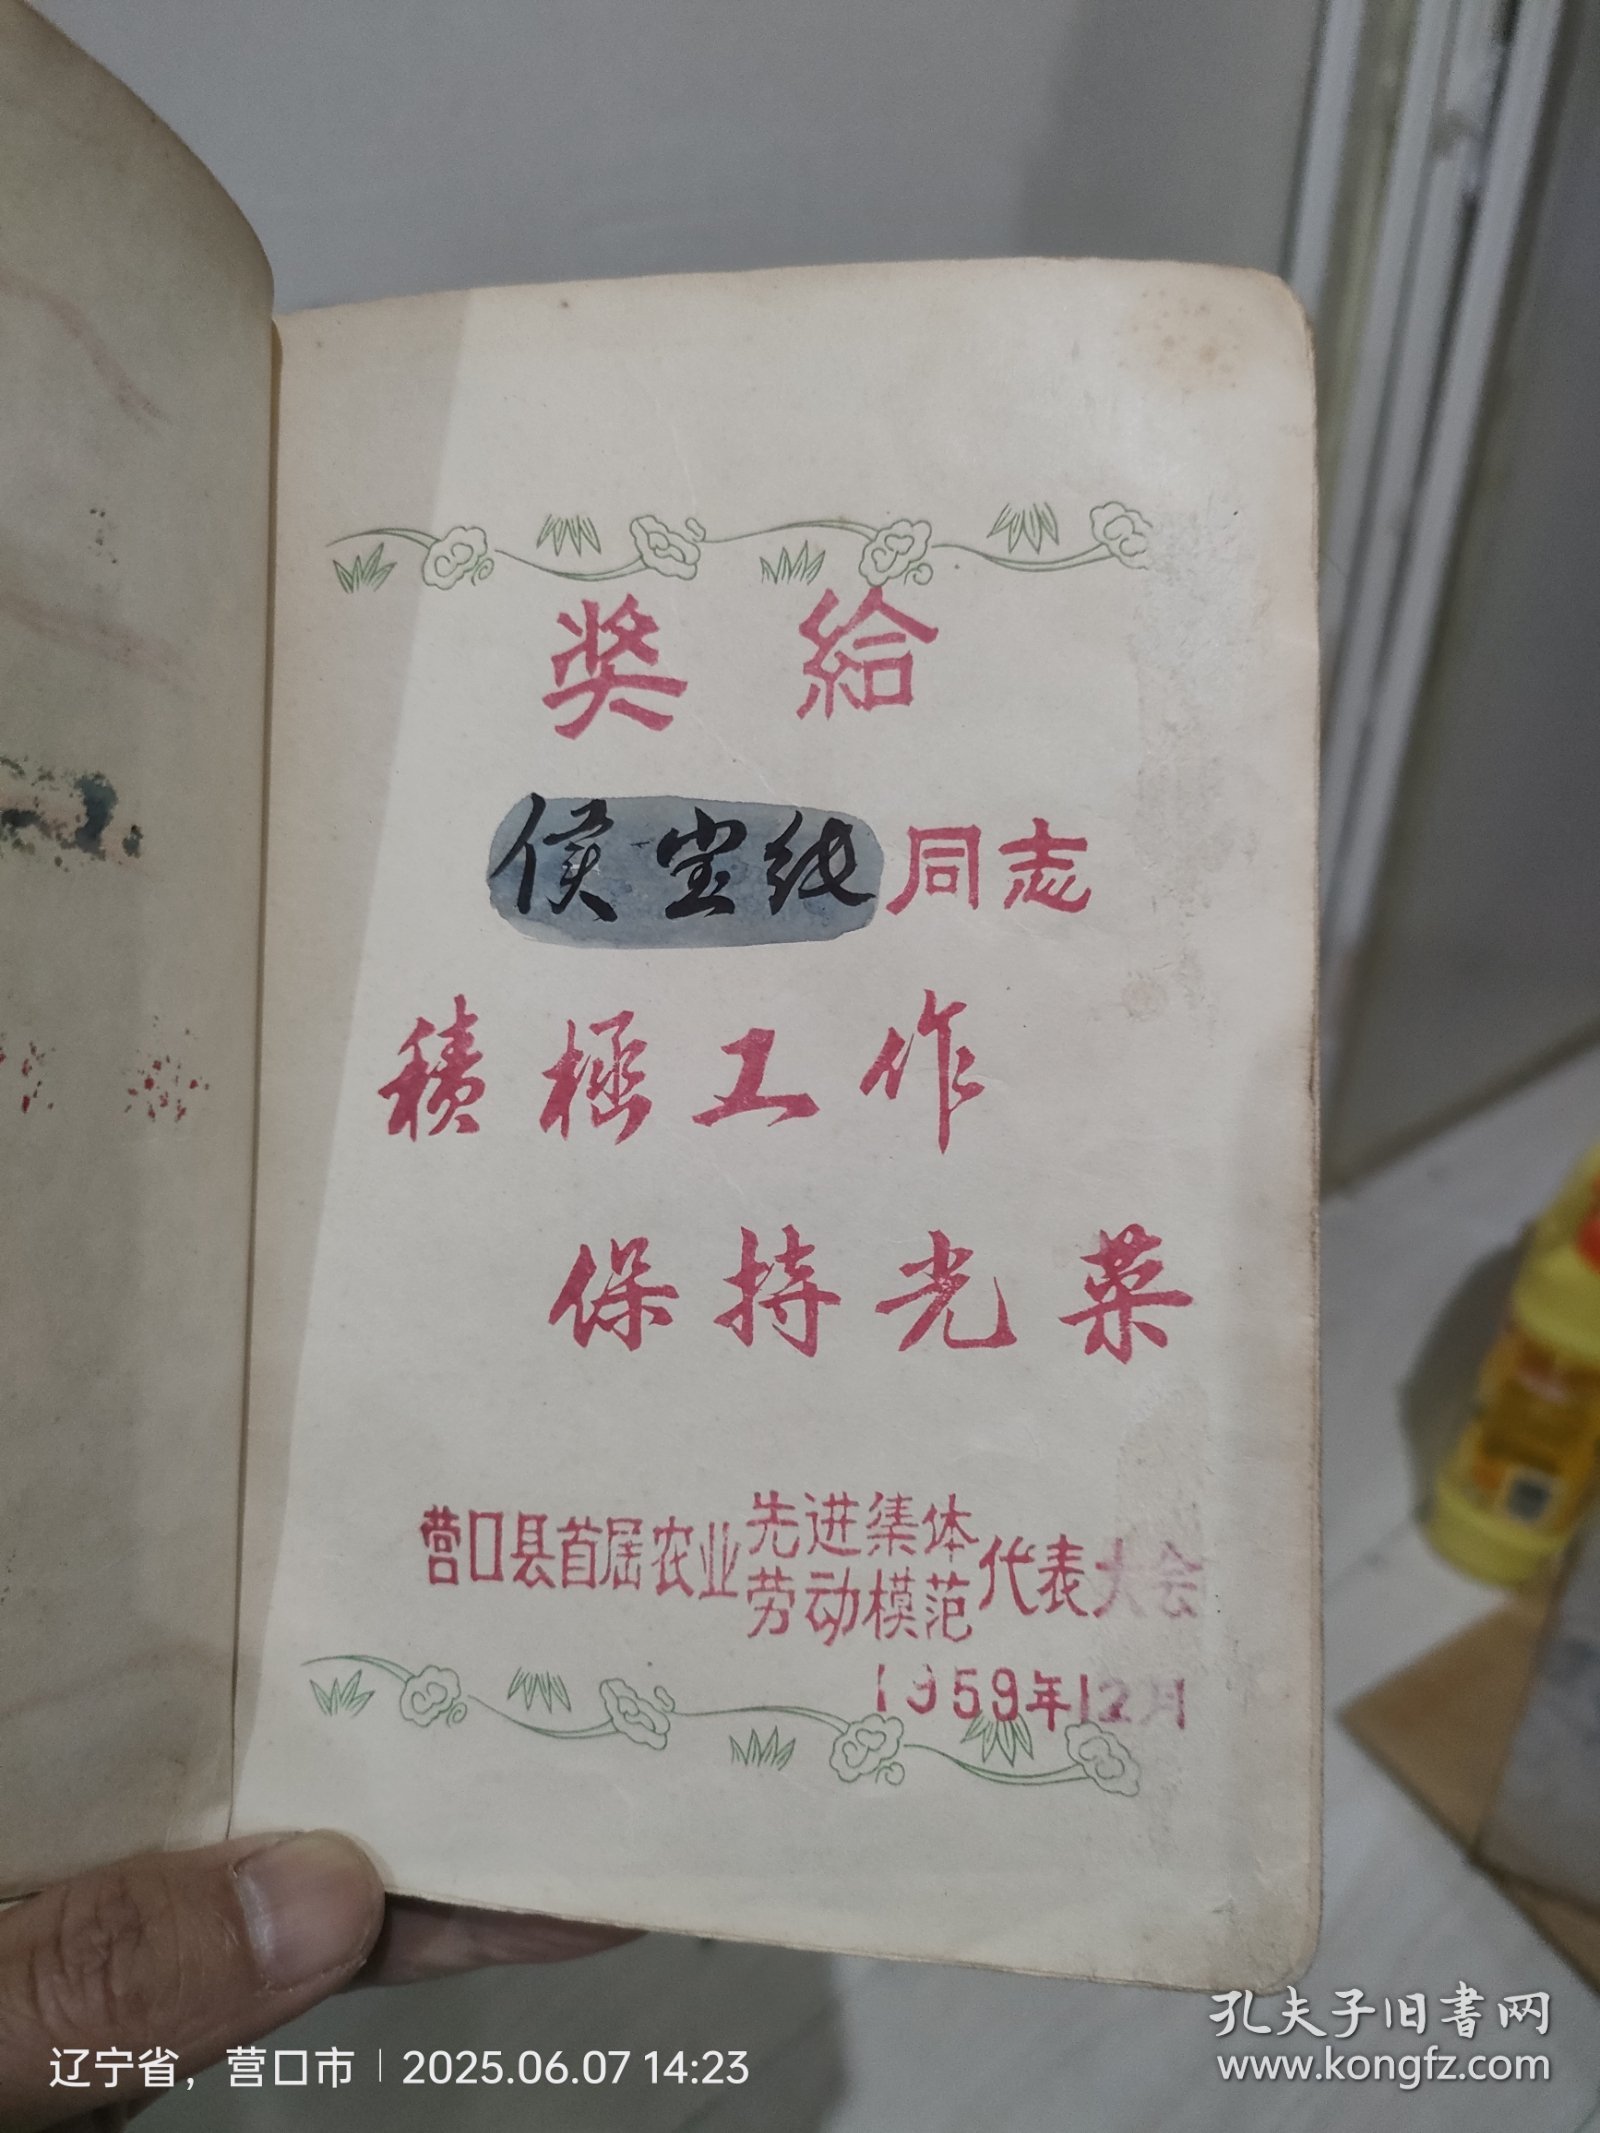 奖給
侯 同志
積極工作
保持光荣
营口县首届农业先进集体劳动模范代表大会
1959年12月
孔夫子旧书网
www.kongfz.com
辽宁省，营口市 | 2025.06.07 14:23